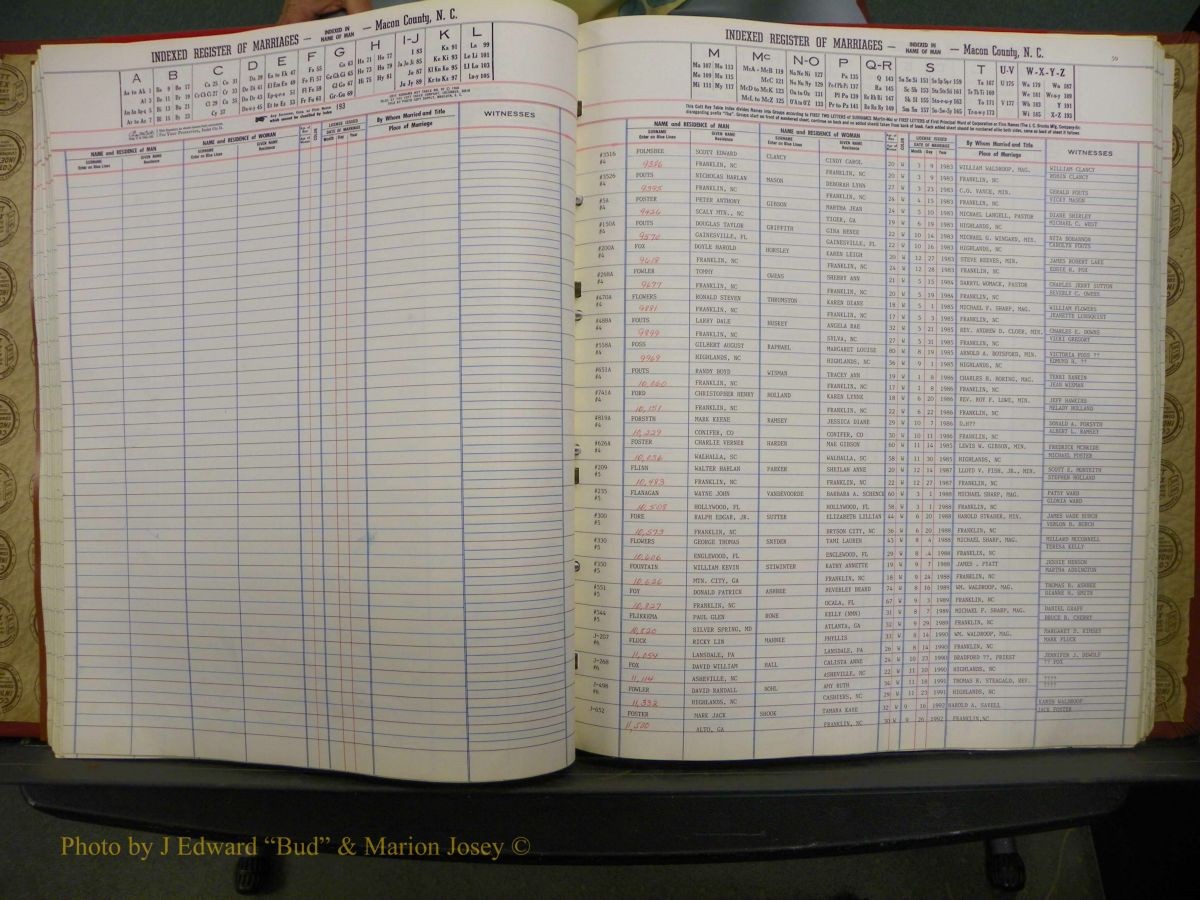 INDEXED REGISTER OF MARRIAGES — INDEXED IN NAME OF MAN — Macon County, N. C.
A B C D E F G H I-J K L
NAME and RESIDENCE OF MAN
NAME and RESIDENCE OF WOMAN
LICENSE ISSUED
DATE OF MARRIAGE
By Whom Married and Title
Place of Marriage
WITNESSES
INDEXED REGISTER OF MARRIAGES — INDEXED IN NAME OF MAN — Macon County, N. C.
M Mc N-O P Q-R S T U-V W-X-Y-Z
NAME and RESIDENCE OF MAN
NAME and RESIDENCE OF WOMAN
LICENSE ISSUED
DATE OF MARRIAGE
By Whom Married and Title
Place of Marriage
WITNESSES
#3516 FOLMSBEE SCOTT EDWARD CLANCY CINDY CAROL 20 W 3 9 1983 WILLIAM WALDROOP, MAG. WILLIAM CLANCY
#4 9386 FRANKLIN, NC FRANKLIN, NC 20 W 3 9 1983 FRANKLIN, NC ROBIN CLANCY
#3526 FOUTS NICHOLAS HARLAN MASON DEBORAH LYNN 27 W 3 23 1983 C.O. VANCE, MIN. GERALD FOUTS
#4 9395 FRANKLIN, NC FRANKLIN, NC 24 W 4 15 1983 FRANKLIN, NC VICKY MASON
#5A FOSTER PETER ANTHONY GIBSON MARTHA JEAN 24 W 5 10 1983 MICHAEL LANGELL, PASTOR DIANE SHIRLEY
#4 9426 SCALY MTN., NC TIGER, GA 19 W 6 19 1983 HIGHLANDS, NC MICHAEL C. WEST
#150A FOUTS DOUGLAS TAYLOR GRIFFITH GINA RENEE 22 W 10 14 1983 MICHAEL G. WINGARD, MIN. NITA BOHANNON
#4 9570 GAINESVILLE, FL GAINESVILLE, FL 22 W 10 16 1983 HIGHLANDS, NC CAROLYN FOUTS
#200A FOX DOYLE HAROLD HORSLEY KAREN LEIGH 20 W 12 27 1983 STEVE REEVES, MIN. JAMES ROBERT LAKE
#4 9618 FRANKLIN, NC FRANKLIN, NC 24 W 12 28 1983 FRANKLIN, NC EDDIE H. FOX
#268A FOWLER TOMMY OWENS SHERRY ANN 21 W 5 15 1984 DARRYL WOMACK, PASTOR CHARLES JERRY SUTTON
#4 9677 FRANKLIN, NC FRANKLIN, NC 20 W 5 19 1984 FRANKLIN, NC BEVERLY C. OWENS
#470A FLOWERS RONALD STEVEN THRUMSTON KAREN DIANE 18 W 5 1 1985 MICHAEL F. SHARP, MAG. WILLIAM FLOWERS
#4 9881 FRANKLIN, NC FRANKLIN, NC 17 W 5 3 1985 FRANKLIN, NC JEANETTE LUNDQUIST
#488A FOUTS LARRY DALE HUSKEY ANGELA RAE 32 W 5 21 1985 REV. ANDREW D. CLOER, MIN. CHARLES E. DOWNS
#4 9899 FRANKLIN, NC SYLVA, NC 27 W 5 31 1985 FRANKLIN, NC VICKI GREGORY
#558A FOSS GILBERT AUGUST RAPHAEL MARGARET LOUISE 80 W 8 19 1985 ARNOLD A. BOTSFORD, MIN. VICTORIA FOSS ??
#4 9968 HIGHLANDS, NC HIGHLANDS, NC 56 W 9 1 1985 HIGHLANDS, NC EDMUND H. ??
#651A FOUTS RANDY BOYD WISMAN TRACEY ANN 19 W 1 8 1986 CHARLES H. RORING, MAG. TERRI RANKIN
#4 10,060 FRANKLIN, NC FRANKLIN, NC 17 W 1 8 1986 FRANKLIN, NC JEAN WISMAN
#741A FORD CHRISTOPHER HENRY HOLLAND KAREN LYNNE 18 W 6 20 1986 REV. ROY F. LOWE, MIN. JEFF HAWKINS
#4 10,151 FRANKLIN, NC FRANKLIN, NC 22 W 6 22 1986 FRANKLIN, NC MELADY HOLLAND
#819A FORSYTH MARK KEENE RAMSEY JESSICA DIANE 29 W 10 7 1986 D.H?? DONALD A. FORSYTH
#4 10,229 CONIFER, CO CONIFER, CO 30 W 10 11 1986 FRANKLIN, NC ALBERT L. RAMSEY
#626A FOSTER CHARLIE VERNER HARDEN MAE GIBSON 60 W 11 14 1985 LEWIS W. GIBSON, MIN. FREDRICK MCBRIDE
#4 10,036 WALHALLA, SC WALHALLA, SC 58 W 11 30 1985 HIGHLANDS, NC MICHAEL FOSTER
#209 FLINN WALTER HARLAN PARKER SHEILAH ANNE 20 W 12 14 1987 LLOYD V. FISH, JR., MIN. SCOTT E. MONTEITH
#5 10,483 FRANKLIN, NC FRANKLIN, NC 22 W 12 27 1987 FRANKLIN, NC STEPHEN HOLLAND
#235 FLANAGAN WAYNE JOHN VANDEVOORDE BARBARA A. SCHENCK 60 W 3 1 1988 MICHAEL SHARP, MAG. PATSY WARD
#5 10,508 HOLLYWOOD, FL HOLLYWOOD, FL 58 W 3 1 1988 FRANKLIN, NC GLORIA WARD
#300 FORE RALPH EDGAR, JR. SUTTER ELIZABETH LILLIAN 44 W 6 20 1988 HAROLD STRADER, MIN. JAMES WADE BURCH
#5 10,573 FRANKLIN, NC BRYSON CITY, NC 36 W 6 20 1988 FRANKLIN, NC VERLON D. BURCH
#330 FLOWERS GEORGE THOMAS SNYDER TAMI LAUREN 43 W 8 4 1988 MICHAEL SHARP, MAG. MILLARD MCCONNELL
#5 10,606 ENGLEWOOD, FL ENGLEWOOD, FL 29 W 8 4 1988 FRANKLIN, NC TERESA KELLY
#350 FOUNTAIN WILLIAM KEVIN STIWINTER KATHY ANNETTE 19 W 9 7 1988 JAMES . PYATT JESSIE HENSON
#5 10,626 MTN. CITY, GA FRANKLIN, NC 18 W 9 24 1988 FRANKLIN, NC MARTHA ADDINGTON
#551 FOY DONALD PATRICK ASHBEE BEVERLEY BEARD 74 W 8 16 1989 WM. WALDROOP, MAG. THOMAS B. ASHBEE
#5 10,827 FRANKLIN, NC OCALA, FL 67 W 9 3 1989 FRANKLIN, NC DIANNE H. SMITH
#544 FLIKKEMA PAUL GLEN ROWE KELLY (NMN) 31 W 8 7 1989 MICHAEL F. SHARP, MAG. DANIEL GRAFF
#5 10,820 SILVER SPRING, MD ATLANTA, GA 32 W 9 29 1989 FRANKLIN, NC BRUCE B. CHERRY
J-207 FLUCK RICKY LIN MAHNKE PHYLLIS 33 W 8 14 1990 WM. WALDROOP, MAG. MARGARET D. KIMSEY
#6 11,054 LANSDALE, PA LANSDALE, PA 26 W 8 14 1990 FRANKLIN, NC MARK FLUCK
J-268 FOX DAVID WILLIAM HALL CALISTA ANNE 24 W 10 23 1990 BRADFORD ??, PRIEST JENNIFER J. DEWOLF
#6 11,114 ASHEVILLE, NC ASHEVILLE, NC 22 W 11 10 1990 HIGHLANDS, NC ?? FOX
J-498 FOWLER DAVID RANDALL BOHL AMY RUTH 34 W 11 18 1991 THOMAS K. STEAGALD, REV. ????
#6 11,332 HIGHLANDS, NC CASHIERS, NC 29 W 11 23 1991 HIGHLANDS, NC ????
J-652 FOSTER MARK JACK SHOOK TAMARA KAYE 32 W 9 16 1992 HAROLD A. SAVELL KAREN WALDROOP
11,500 ALTO, GA FRANKLIN, NC 30 W 9 26 1992 FRANKLIN,NC JACK FOSTER
Photo by J Edward “Bud” & Marion Josey ©